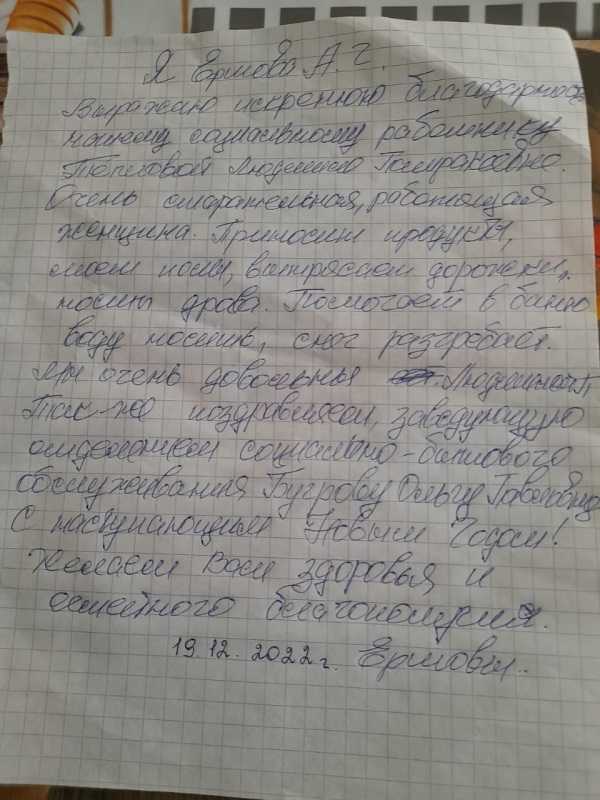 Я Ермова А. Г.
Выражаю искреннюю благодарность
нашему социальному работнику
Тепловой Людмиле
Очень старательная, работящая
женщина. Приносит продукты,
моет полы, вытрясает дорожки,
носит дрова. Помогает в баню
воду носить, снег разгребает.
Мы очень довольны Людмилой П,
Так-же поздравляем, заведующую
отделением социально-бытового
обслуживания Бугрову Ольгу Павловну
С наступающим Новым Годом!
Желаем Вам здоровья и
семейного благополучия.
19.12.2022г. Ермовы.